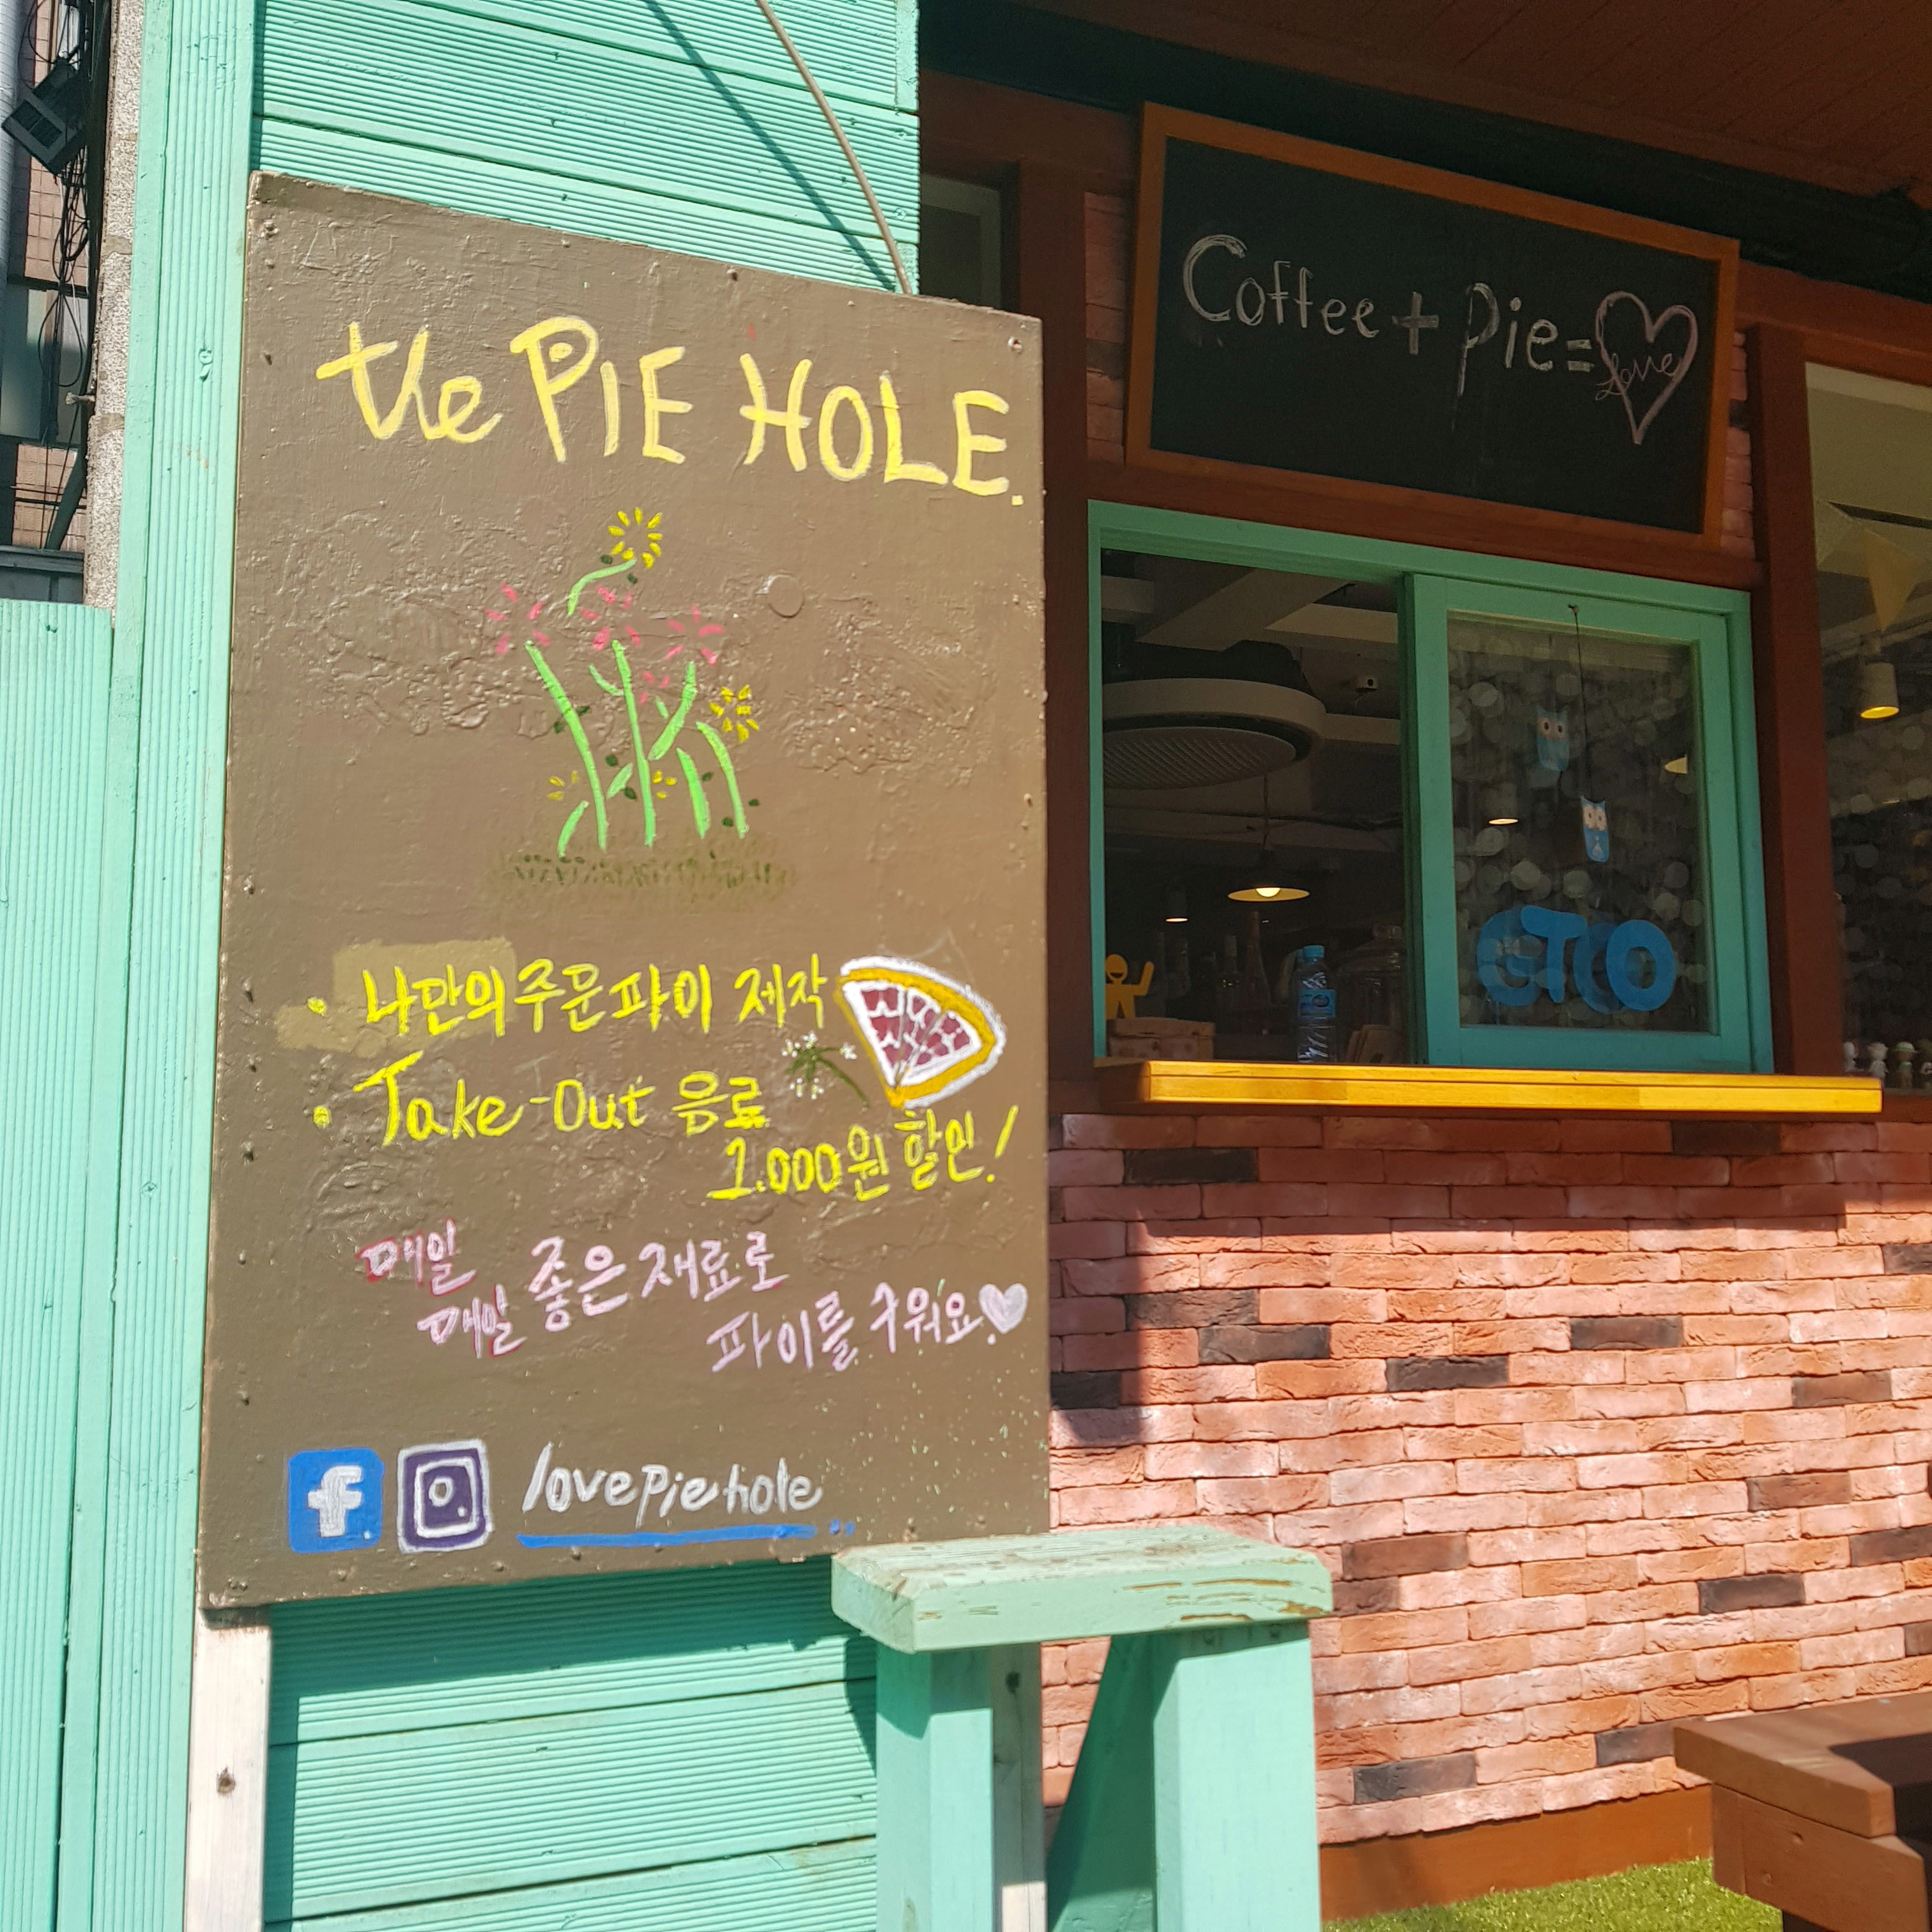 the PIE HOLE.
• 나만의 주문파이 제작
• Take-Out 음료
1.000원 할인!
매일
매일 좋은 재료로
파이를 구워요♥
lovepiehole
Coffee + Pie = Love
GTCO